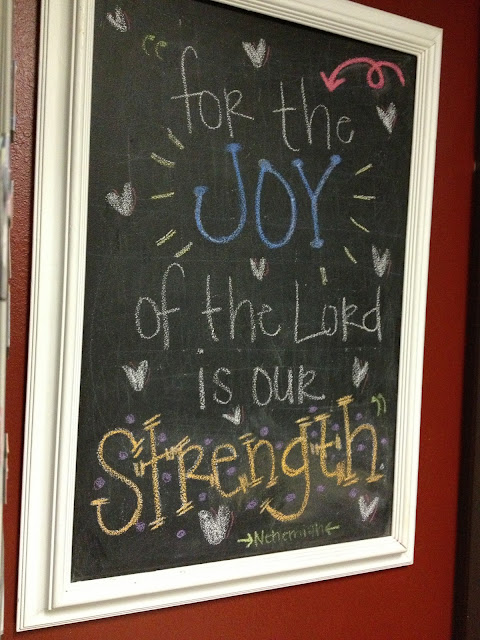 “for the
JOY
of the Lord
is our
Strength”
Nehemiah